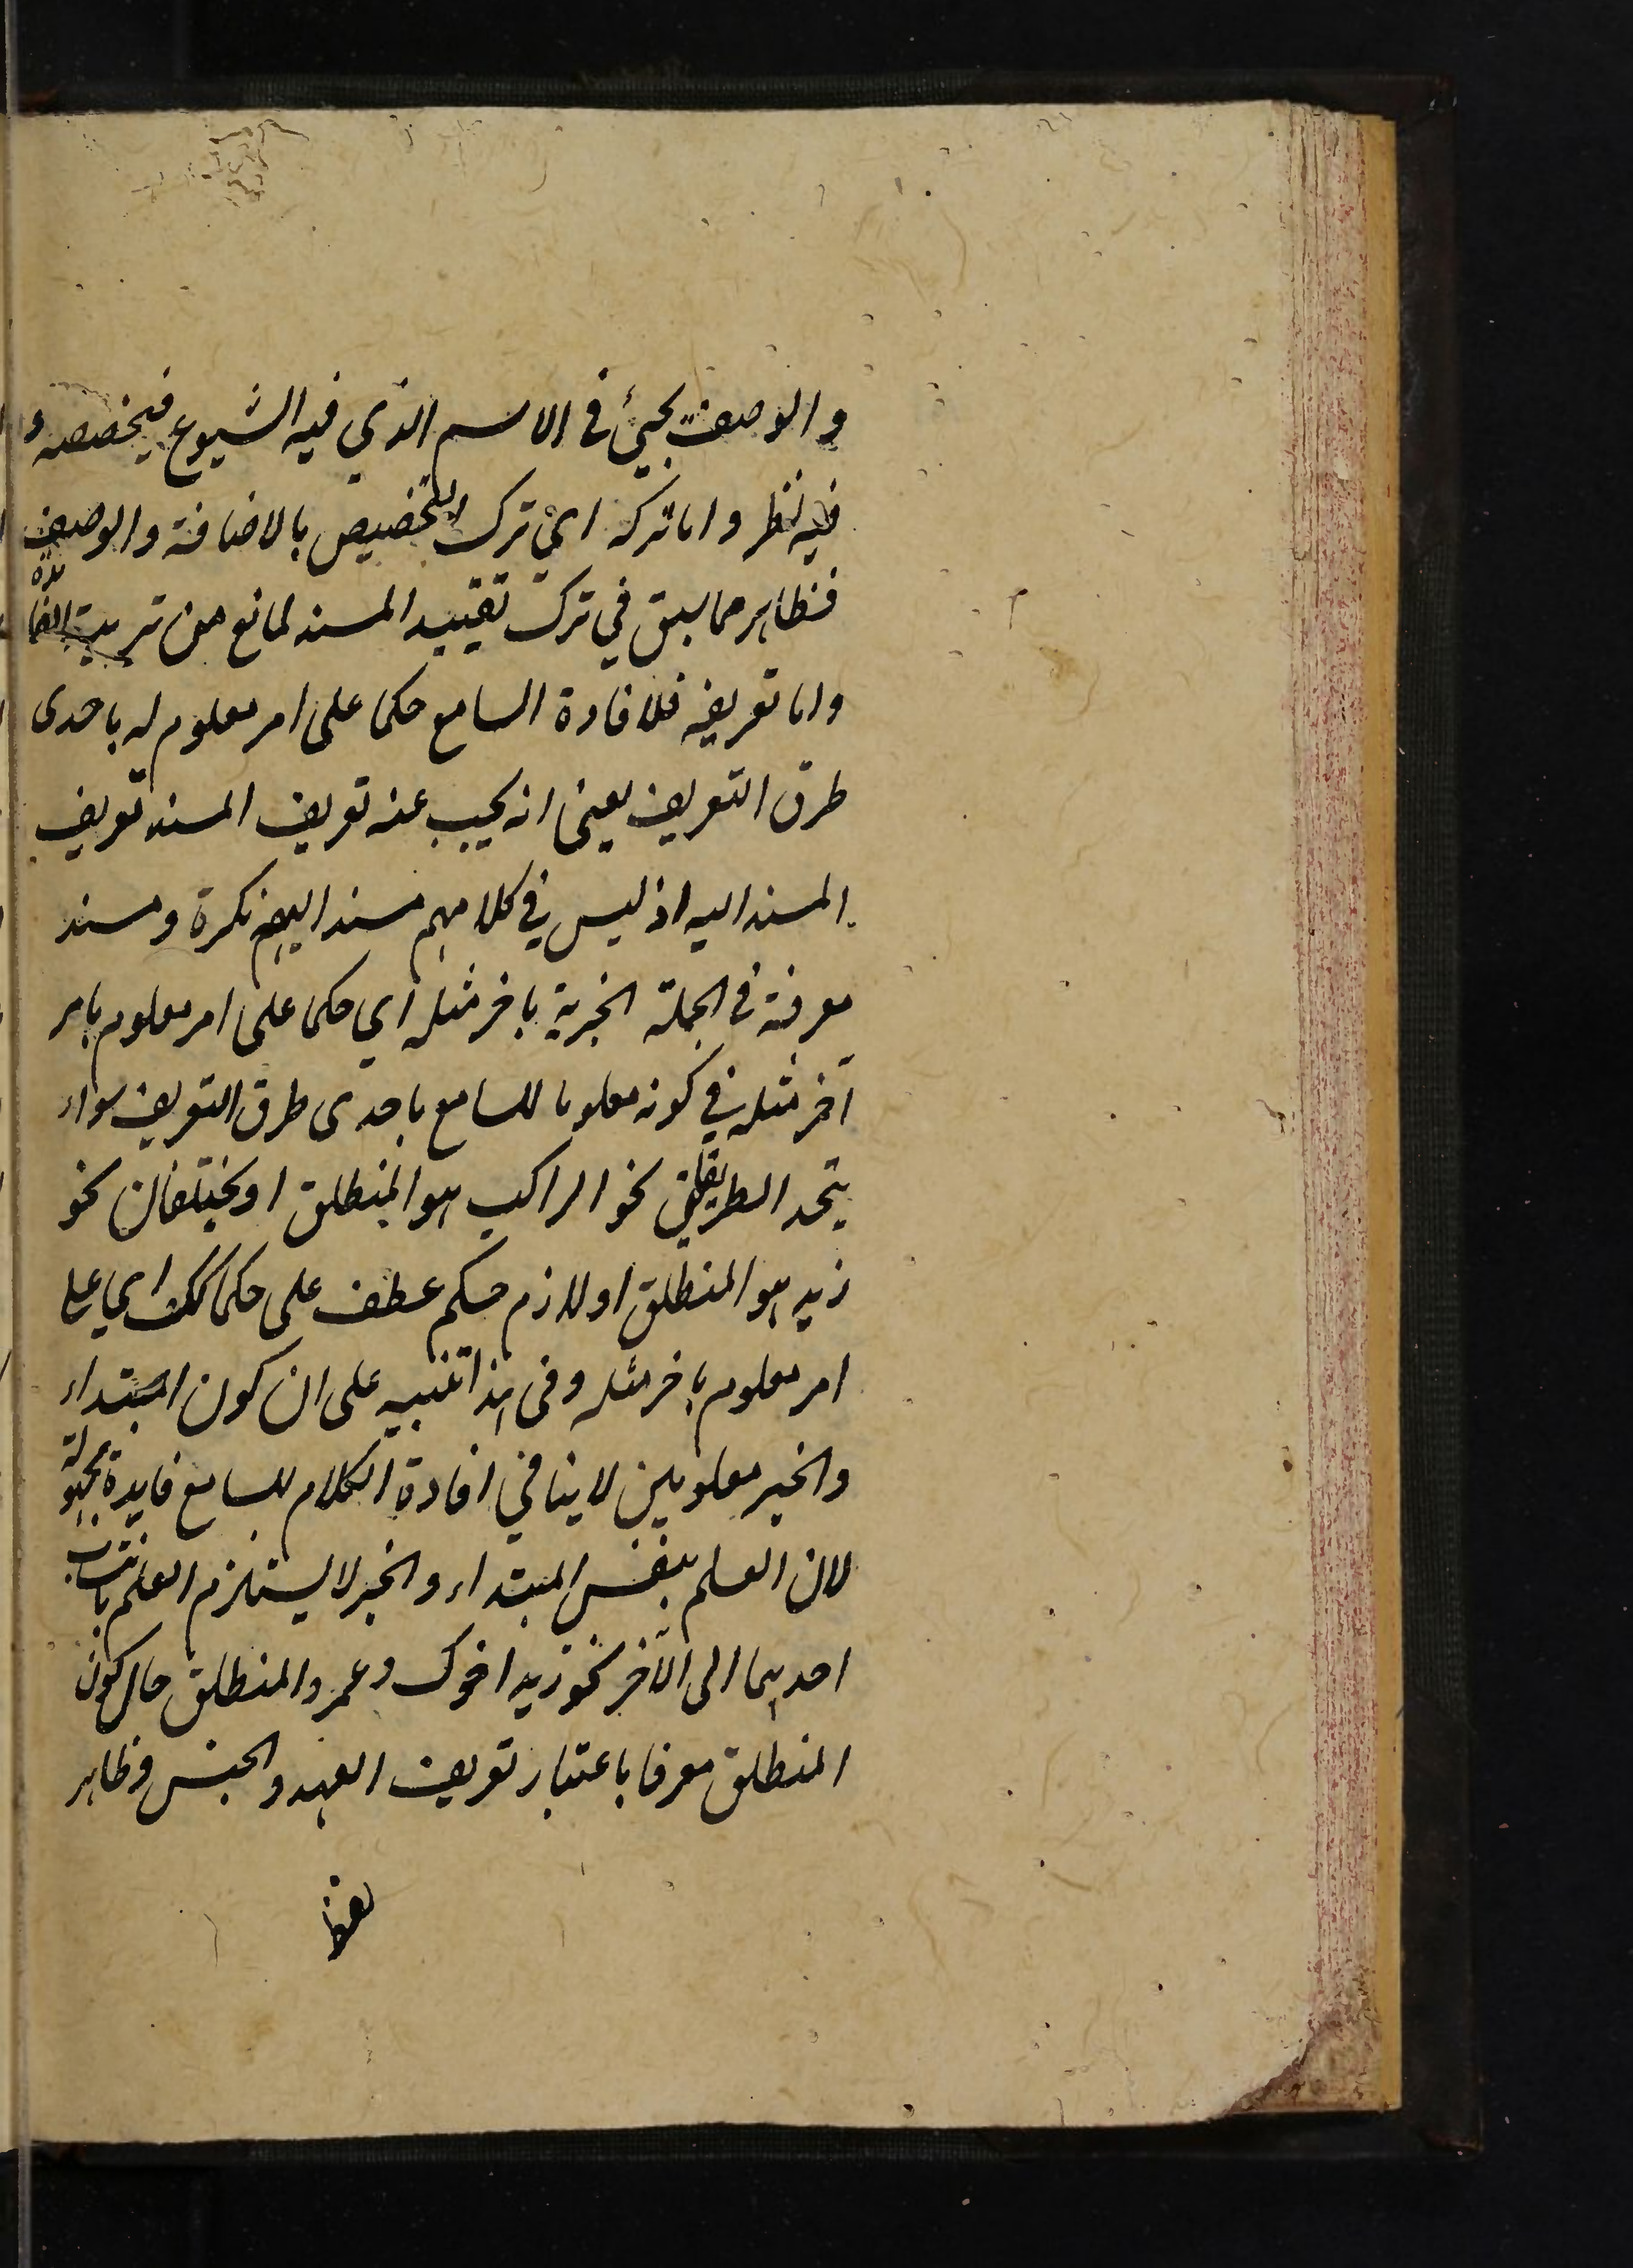 والوصف يجئ في الاسم الذي فيه الشيوع فيخصصه و
فيه نظر واما تركه اي ترك التخصيص بالاضافة والوصف
فظاهر مما سبق في ترك تقييد المسند لمانع من تربية الفائدة
واما تعريفه فلافادة السامع حكما على امر معلوم له باحدى
طرق التعريف يعني انه يجب عند تعريف المسند تعريف
المسند اليه اذ ليس في كلامهم مسند اليه نكرة ومسند
معرفة في الجملة الخبرية بآخر مثله اي حكما على امر معلوم بامر
آخر مثله في كونه معلوما للسامع باحدى طرق التعريف سواء
يتحد الطريقان نحو الراكب هو المنطلق او يختلفان نحو
زيد هو المنطلق او لازم حكم عطف على حكما كك اي على
امر معلوم بآخر مثله وفي هذا تنبيه على ان كون المبتداء
والخبر معلومين لا ينافي افادة الكلام للسامع فايدة مجهولة
لان العلم بنفس المبتداء والخبر لا يستلزم العلم بانتساب
احدهما الى الآخر نحو زيد اخوك وعمرو المنطلق حال كون
المنطلق معرفا باعتبار تعريف العهد والجنس وظاهر
لفظ